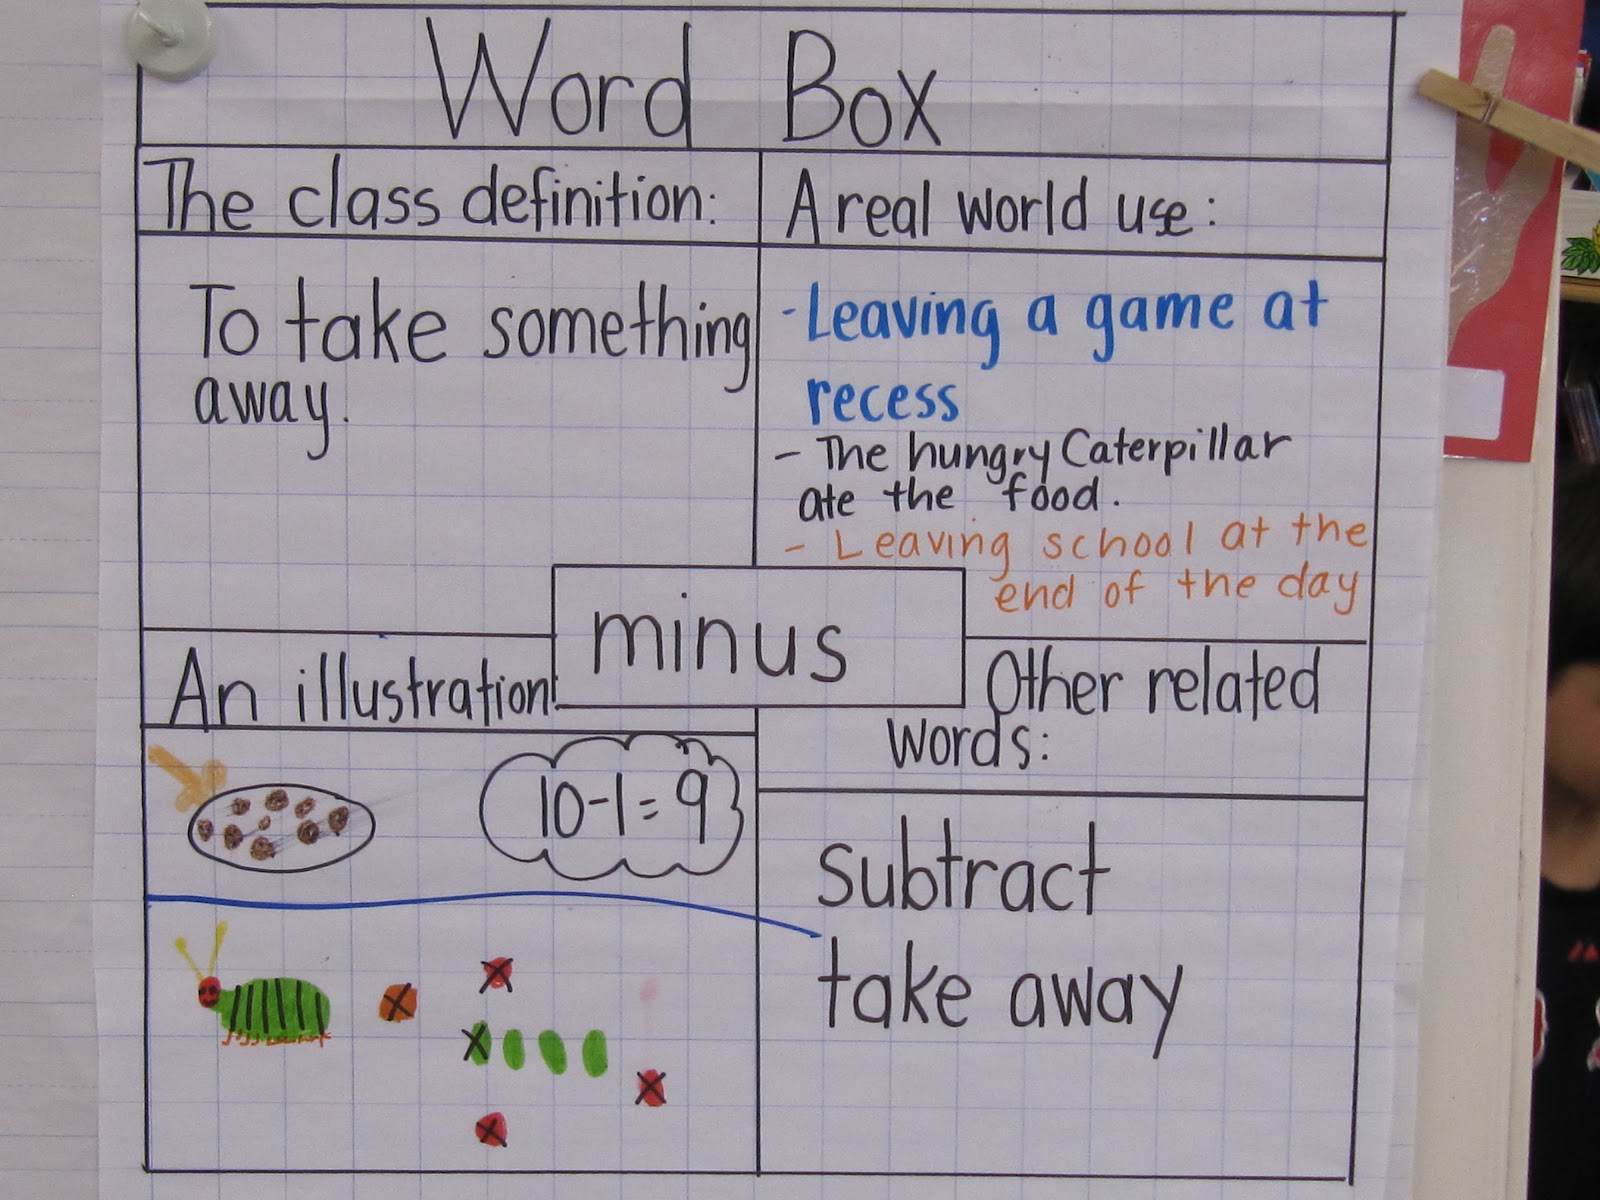 Word Box
The class definition:
To take something
away.
A real world use:
- Leaving a game at
recess
- The hungry Caterpillar
ate the food.
- Leaving school at the
end of the day
minus
An illustration:
10-1=9
Other related
words:
subtract
take away